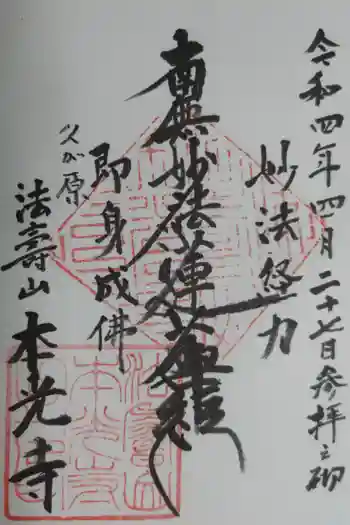 令和四年四月二十七日参拝之砌
妙法経力
南無妙法蓮華経
即身成佛
久が原
法壽山 本光寺